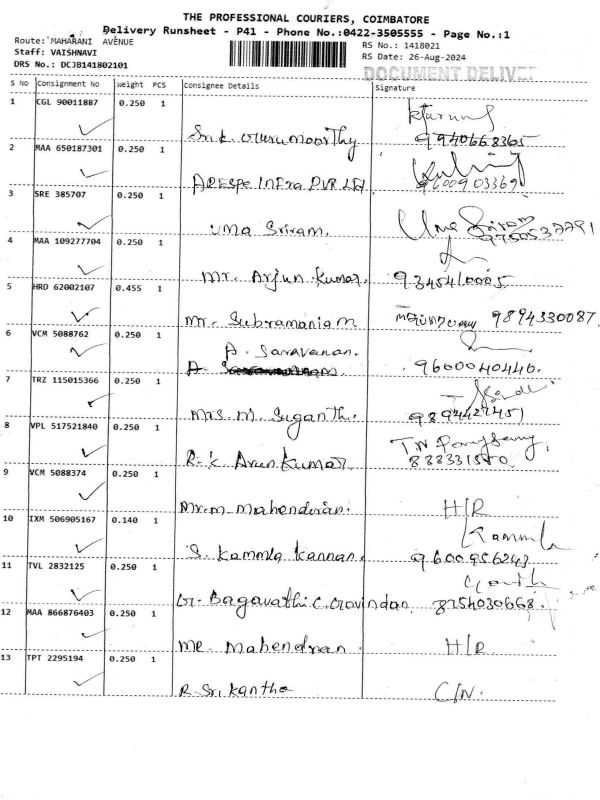 THE PROFESSIONAL COURIERS, COIMBATORE
Delivery Runsheet - P41 - Phone No.:0422-3505555 - Page No.:1
Route: MAHARANI AVENUE
Staff: VAISHNAVI
DRS No.: DCJB141802101
RS No.: 1418021
RS Date: 26-Aug-2024
DOCUMENT DELIVE
S No Consignment No Weight PCS Consignee Details Signature
1 CGL 90011887 0.250 1
Sri.k. Gurumoorthy 9940668365
2 MAA 650187301 0.250 1
Infra PVR Ltd 960090336
3 SRE 385707 0.250 1
Uma Sriram. Uma Sriram
9750537791
4 MAA 109277704 0.250 1
Mr. Arjun Kumar. 9345410005
5 HRD 62002107 0.455 1
Mr. Subramaniam 9894330087
6 VCM 5088762 0.250 1
A. Saravanan.
A. 9600040440.
7 TRZ 115015366 0.250 1
Mrs. M. Suganthi 9894427451
8 VPL 517521840 0.250 1
R.K Arun Kumar T.N
9 VCM 5088374 0.250 1
Mr.m. Mahendiran. H/R
10 IXM 506905167 0.140 1
S. Kammla Kannan. Kammla
9600956243
11 TVL 2832125 0.250 1
Gr. Bagavathi C. Govindan 8754030668.
12 MAA 866876403 0.250 1
Mr. Mahendran H/R
13 TPT 2295194 0.250 1
R. Sri Kantha C/N.